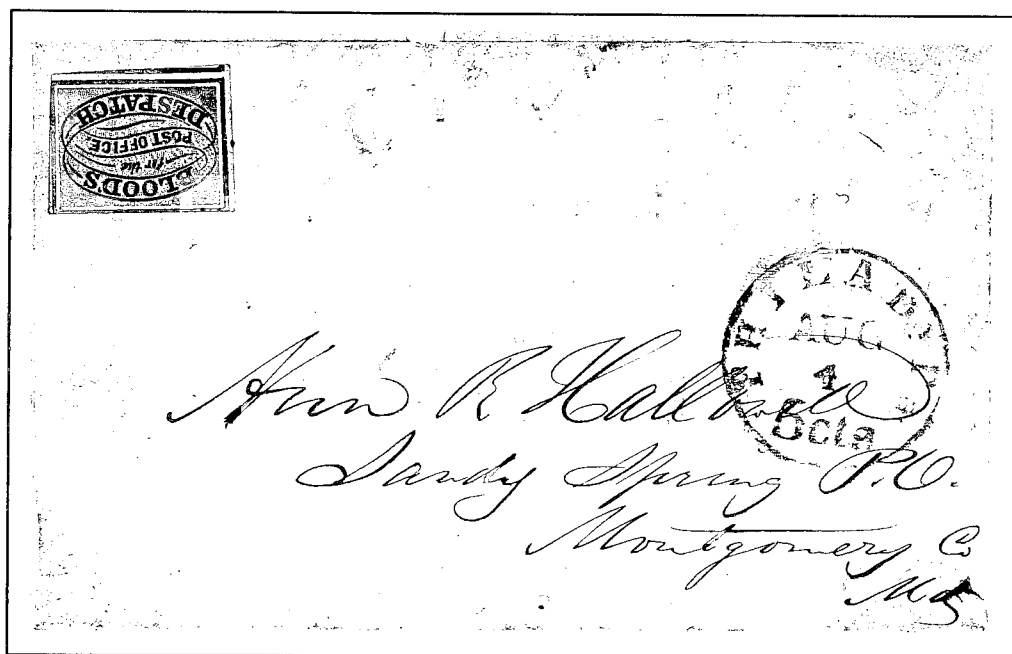 BLOOD'S
for the
POST OFFICE.
DESPATCH
PHILADA
AUG
4
5cts
Ann R Hallowell
Sandy Spring P.O.
Montgomery Co
Md